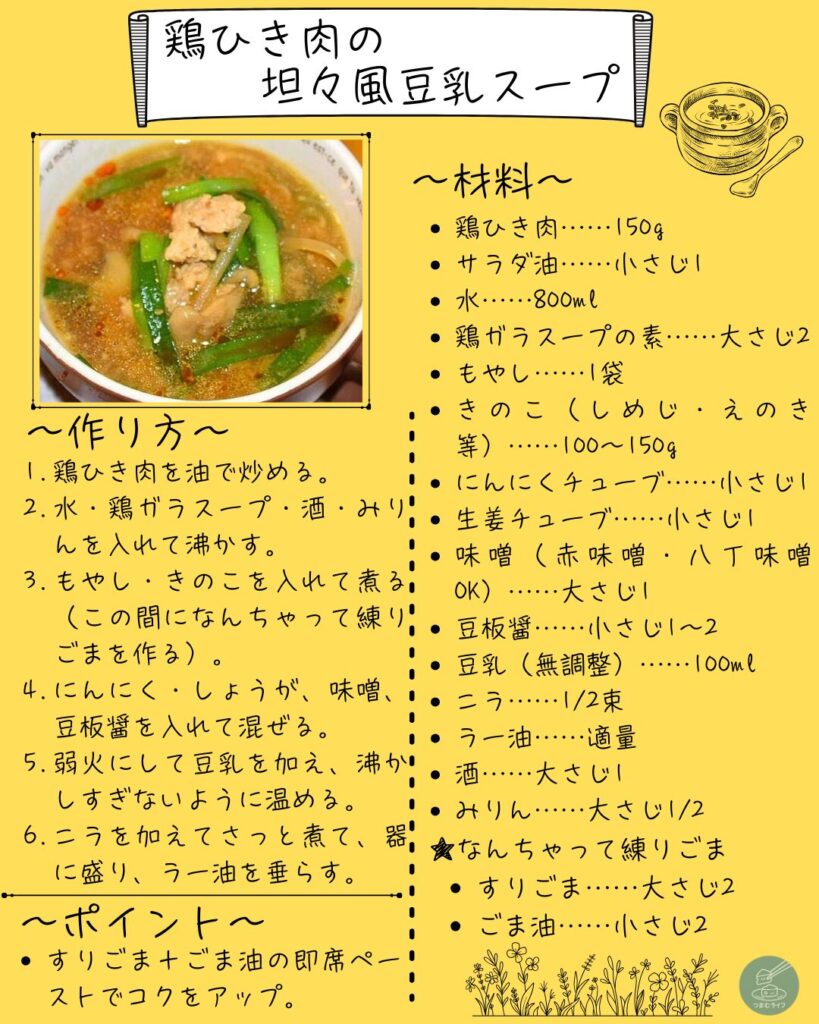 鶏ひき肉の
坦々風豆乳スープ
〜作り方〜
1. 鶏ひき肉を油で炒める。
2. 水・鶏ガラスープ・酒・みり
んを入れて沸かす。
3. もやし・きのこを入れて煮る
（この間になんちゃって練り
ごまを作る）。
4. にんにく・しょうが、味噌、
豆板醤を入れて混ぜる。
5. 弱火にして豆乳を加え、沸か
しすぎないように温める。
6. ニラを加えてさっと煮て、器
に盛り、ラー油を垂らす。
〜ポイント〜
• すりごま＋ごま油の即席ペー
ストでコクをアップ。
〜材料〜
• 鶏ひき肉……150g
• サラダ油……小さじ1
• 水……800ml
• 鶏ガラスープの素……大さじ2
• もやし……1袋
• きのこ（しめじ・えのき
等）……100〜150g
• にんにくチューブ……小さじ1
• 生姜チューブ……小さじ1
• 味噌（赤味噌・八丁味噌
OK）……大さじ1
• 豆板醤……小さじ1〜2
• 豆乳（無調整）……100ml
• ニラ……1/2束
• ラー油……適量
• 酒……大さじ1
• みりん……大さじ1/2
★なんちゃって練りごま
• すりごま……大さじ2
• ごま油……小さじ2
つまむライフ